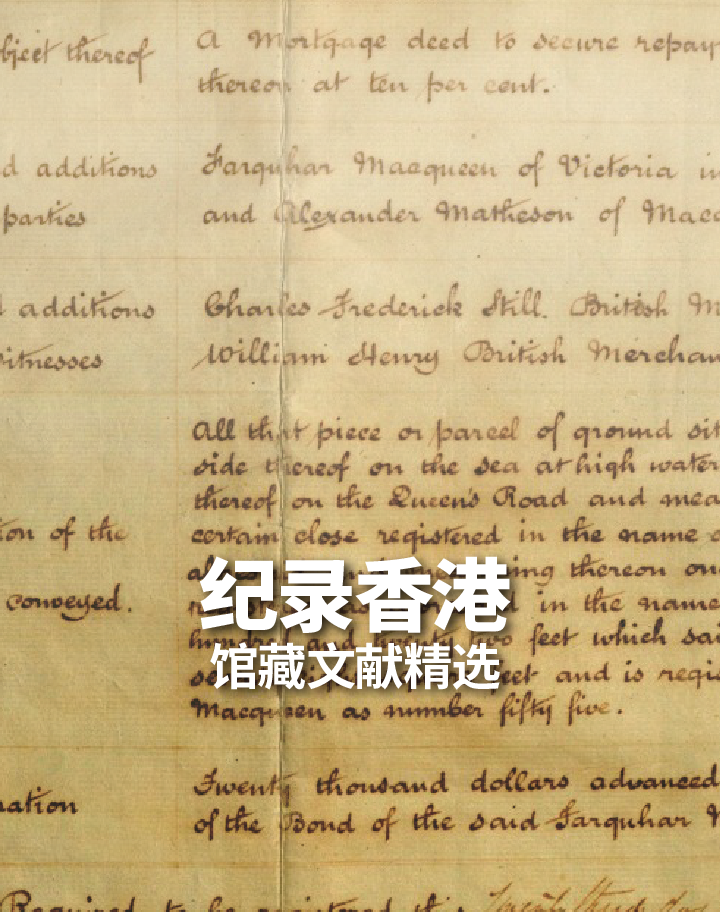 bject thereof
A Mortgage deed to secure repay
thereon at ten per cent.
d additions
Farquhar Macqueen of Victoria in
parties
and Alexander Matheson of Maca
additions
Charles Frederick Still. British M
witnesses
William Henry British Merchan
All that piece or parcel of ground sit
side thereof on the sea at high water
thereof on the Queen's Road and mea
tion of the
certain close registered in the name o
ing thereon on
纪录香港
conveyed.
in the name
hundred and twenty two feet which sai
馆藏文献精选
feet and is regis
Macqueen as number fifty five.
Twenty thousand dollars advanced
ation
of the Bond of the said Farquhar M
Required to be registered this